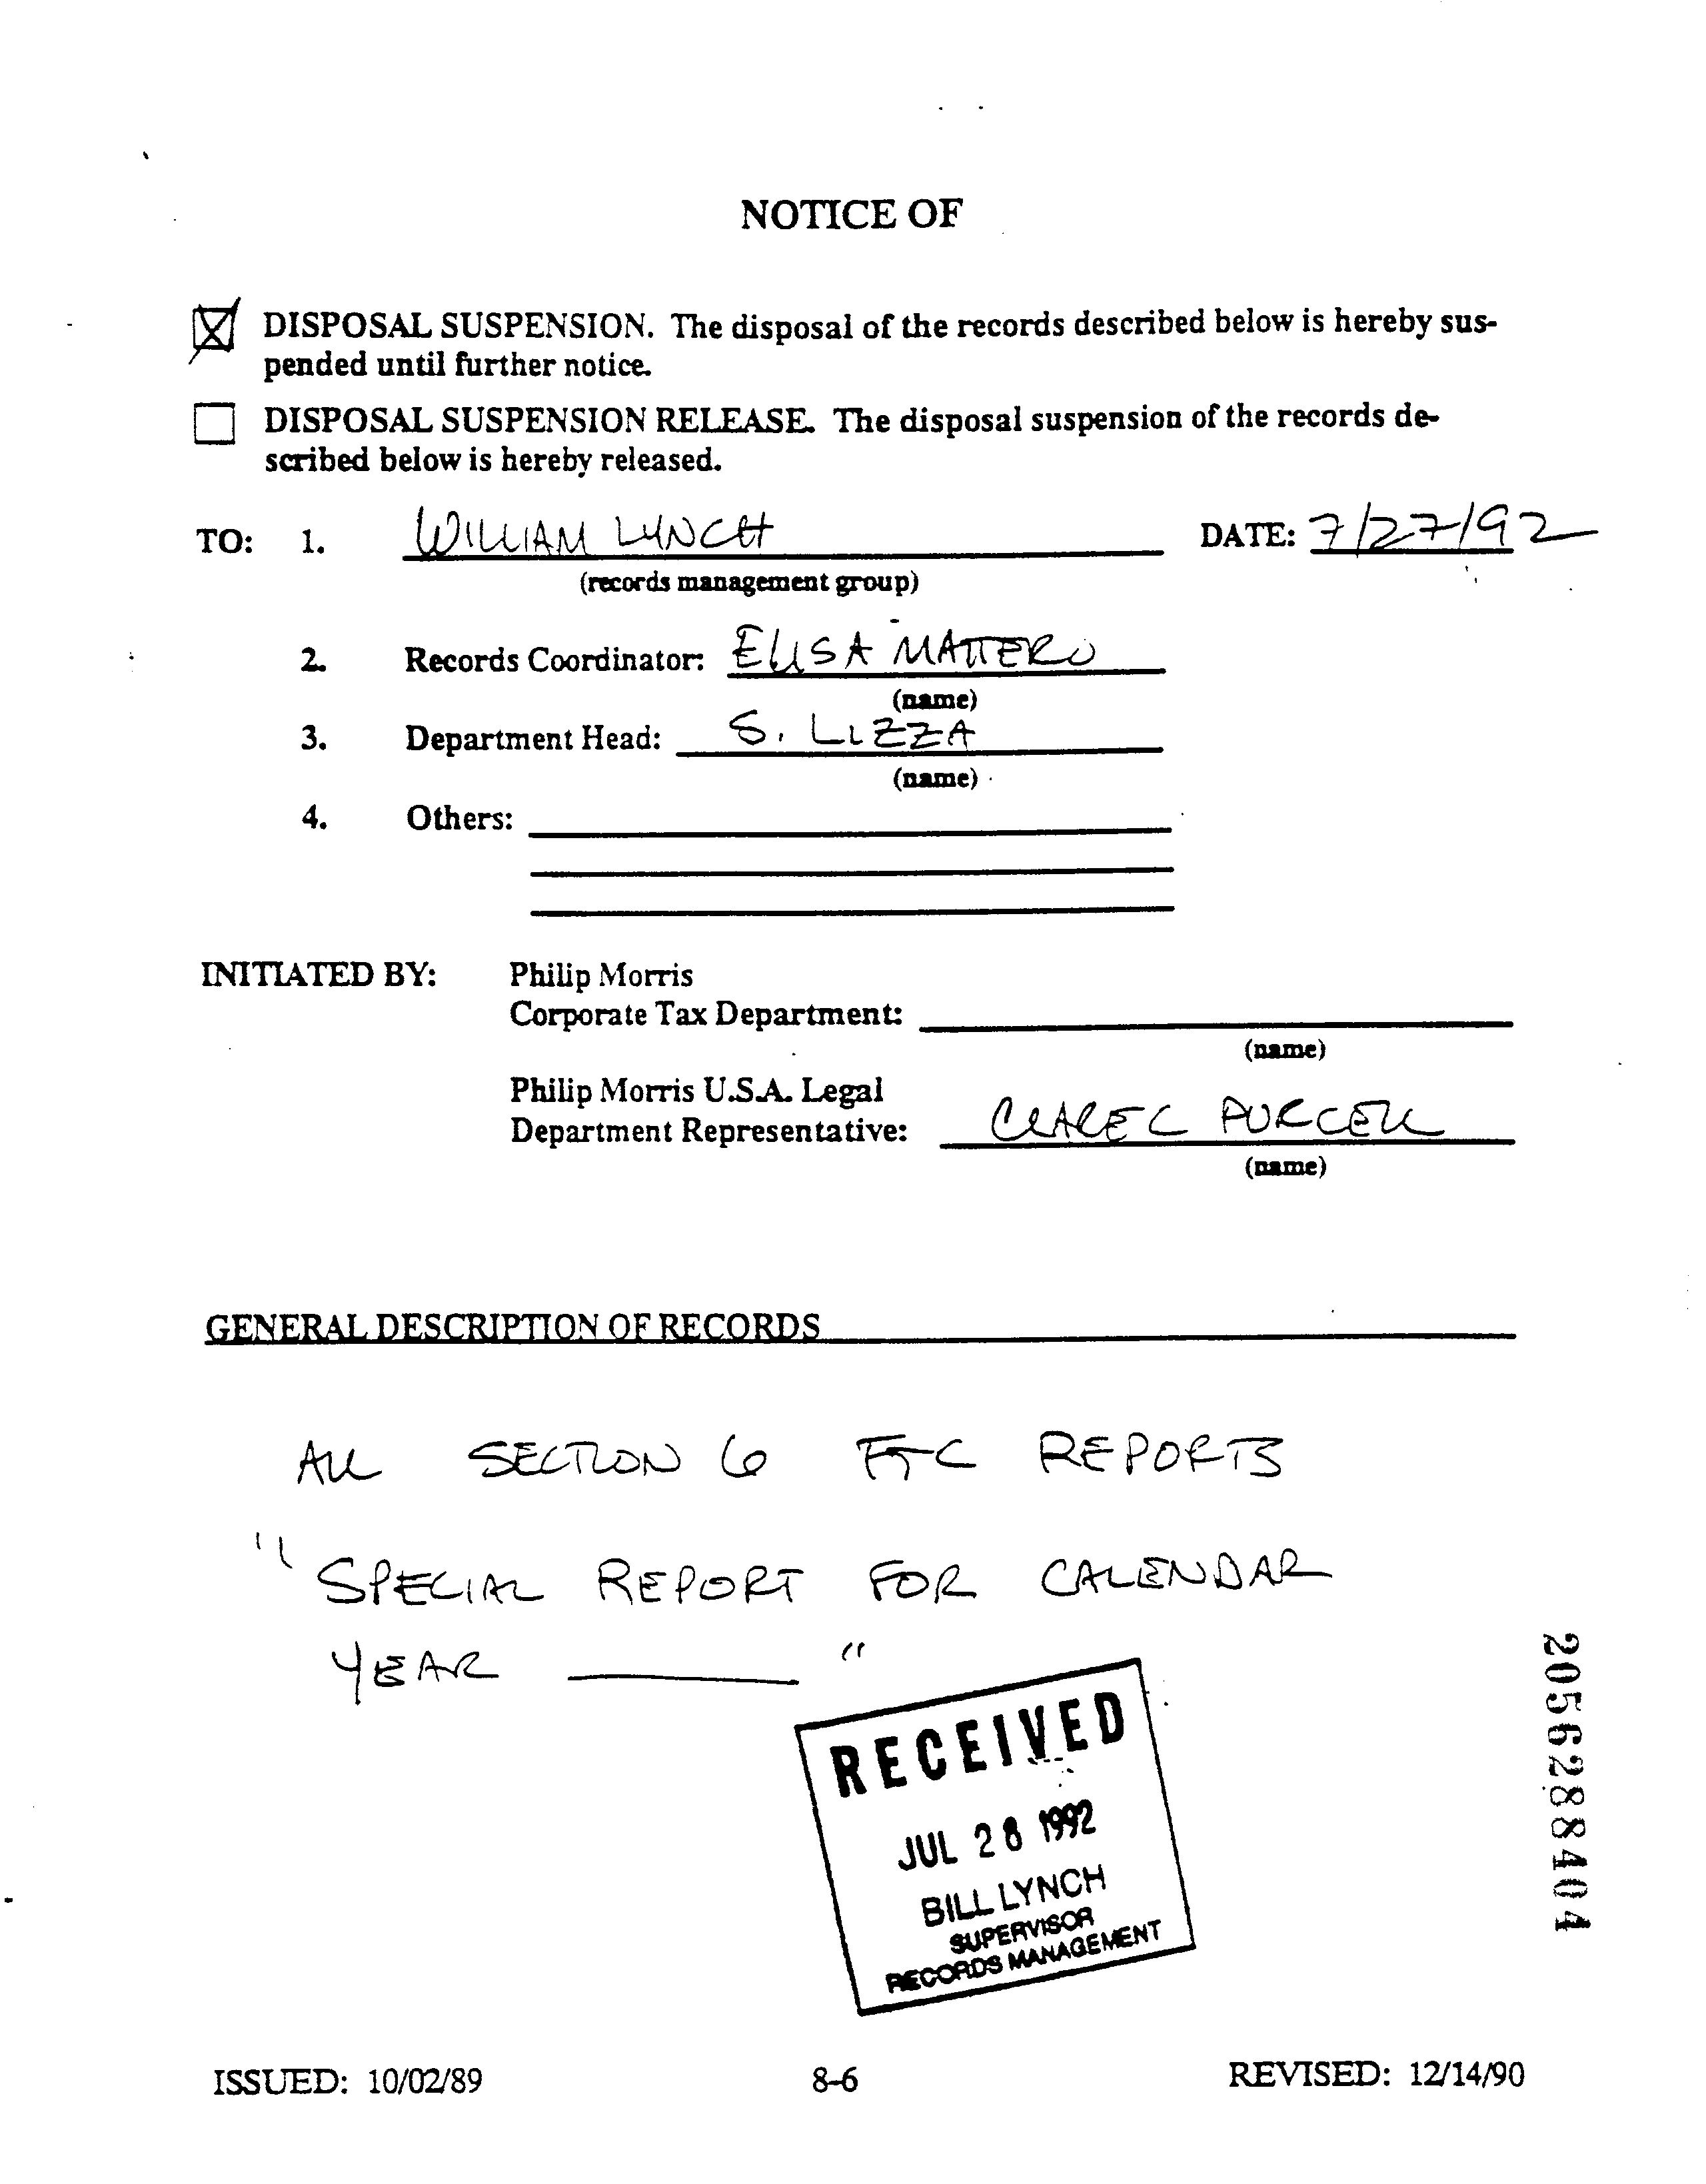 NOTICE OF
DISPOSAL SUSPENSION. The disposal of the records described below is hereby sus-
pended until further notice.
DISPOSAL SUSPENSION RELEASE. The disposal suspension of the records de-
scribed below is hereby released.
TO: 1. WILLIAM LYNCH DATE: 7/27/92
(records management group)
2. Records Coordinator: ELISA MATTERO
(name)
3. Department Head: S. LIZZA
(name)
4. Others:
INITIATED BY: Philip Morris
Corporate Tax Department:
(name)
Philip Morris U.S.A. Legal
Department Representative: CLARE C PURCELL
(name)
GENERAL DESCRIPTION OF RECORDS
ALL SECTION 6 FTC REPORTS
"SPECIAL REPORT FOR CALENDAR
YEAR ______"
RECEIVED
JUL 28 1992
BILL LYNCH
SUPERVISOR
RECORDS MANAGEMENT
2056288404
ISSUED: 10/02/89 8-6 REVISED: 12/14/90